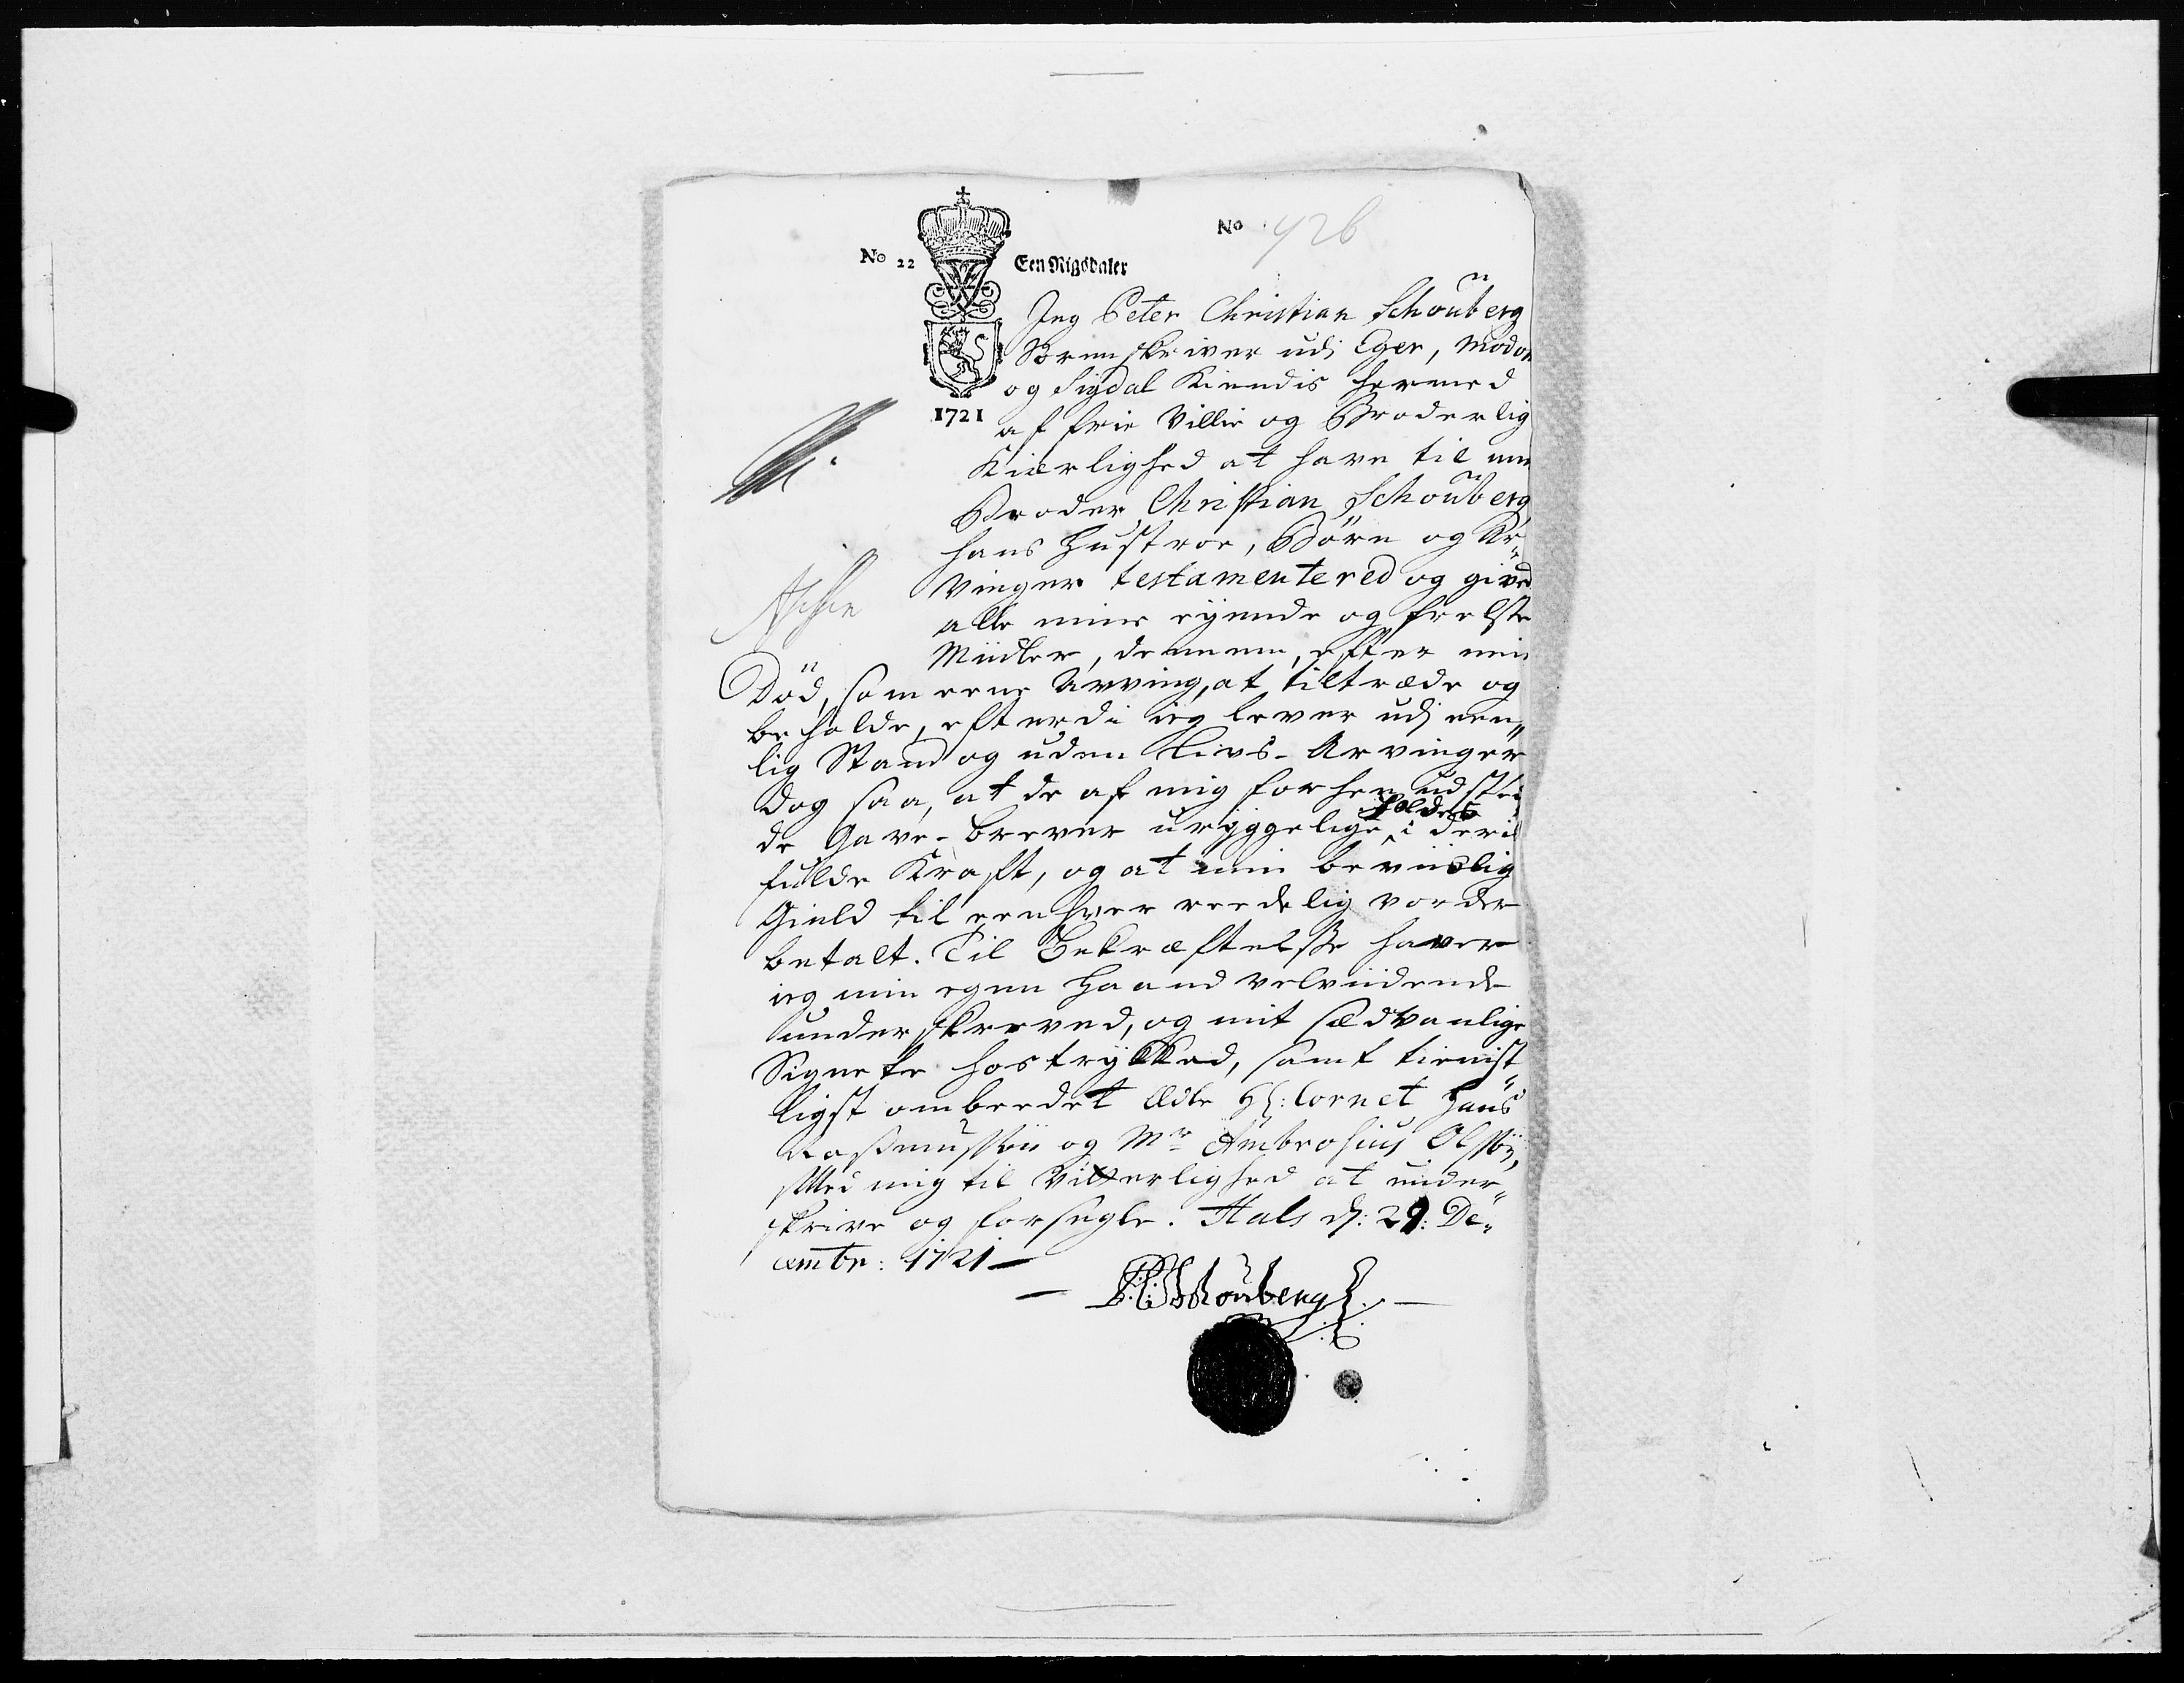 No 726
No 22 Een Rigsdaler
1721
Jeg Peter Christian Schouberg
Sorenskriver udi Eger, Modon
og Sigdal Kiendis hermed
af frie Villie og Broderlig
Kierlighed at have til min
Broder Christian Schouberg
hans Hustroe, Børn og Ar-
vinger testamentered og gived
alle mine eyende og frelste
Midler, dennem, efter min
Död, som eene Arving, at tiltræde og
beholde, efterdi ieg lever udj een-
lig Stand og uden Livs-Arvinger
dog saa, at de af mig forhen udste-
de Gave-brever uryggelige holdes i deris
fulde Kraft, og at min beviislig
Gield til eenhver reedelig vorder
betalt. Til Bekræftelsse haver
ieg min egen Haand velviidende
underskreved, og mit sædvanlige
Signete hostrykked, samt tienst-
ligst ombeedet Ædle Hr: Cornet Hans
Rasmussøn og Mr Ambrosius Olssøn,
Med mig til Vitterlighed at under-
skrive og forsegle. Hals d: 29: De-
cembr: 1721
P:C: Schouberg